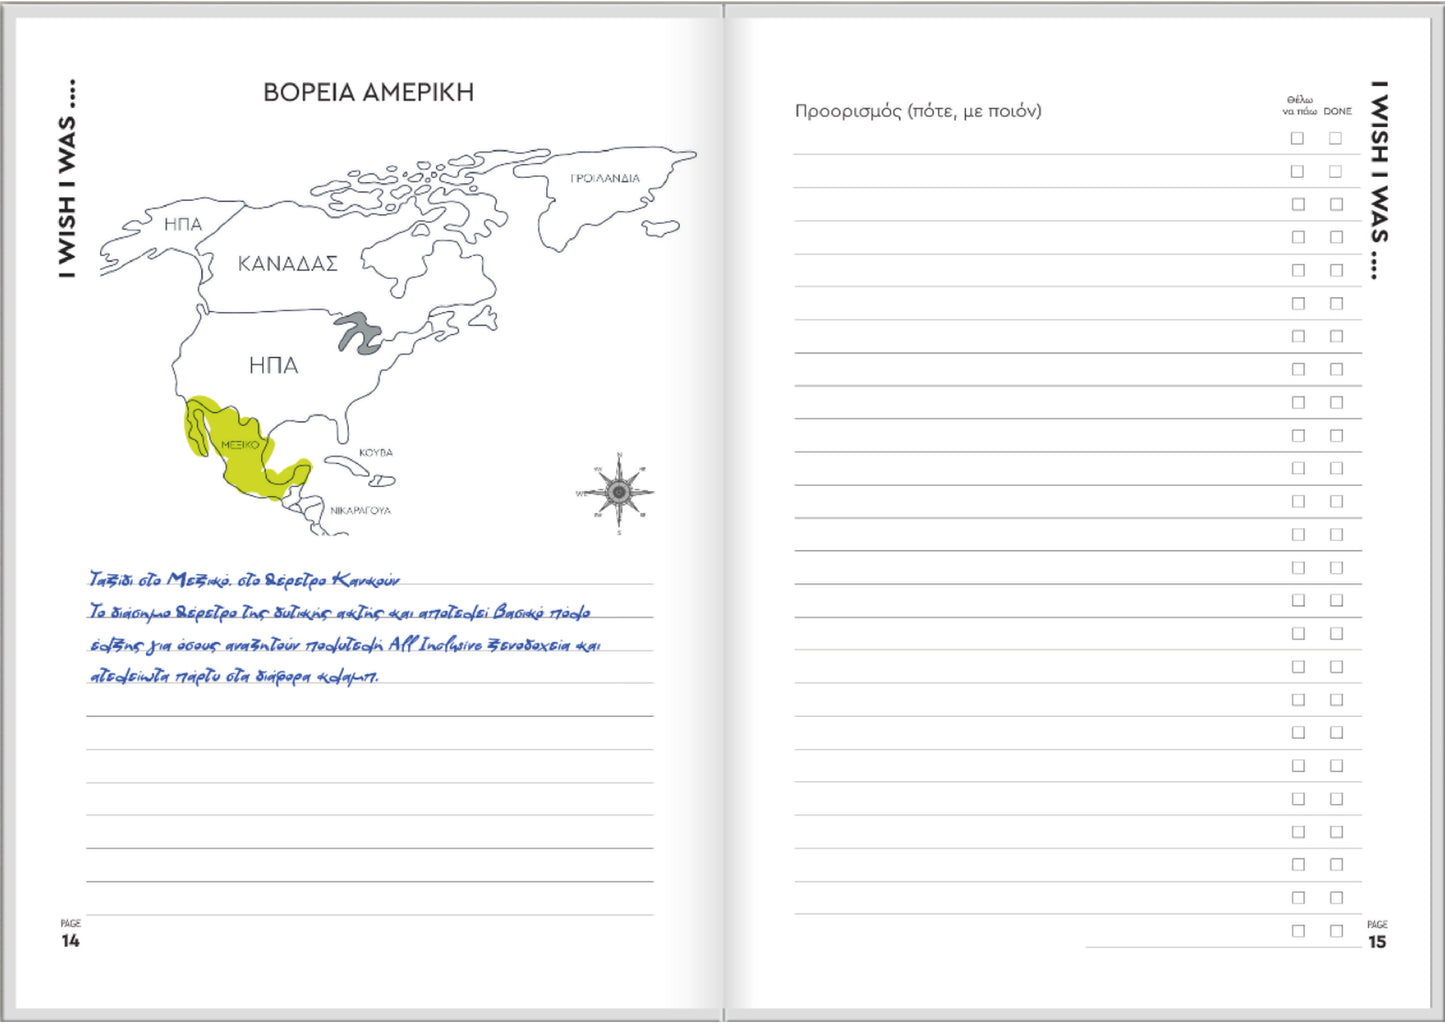 I WISH I WAS ....
ΒΟΡΕΙΑ ΑΜΕΡΙΚΗ
ΓΡΟΙΛΑΝΔΙΑ
ΗΠΑ
ΚΑΝΑΔΑΣ
ΗΠΑ
ΜΕΞΙΚΟ
ΚΟΥΒΑ
ΝΙΚΑΡΑΓΟΥΑ
N
S
Ταξίδι στο Μεξικό. στο θέρετρο Κανκούν
Το διάσημο θέρετρο της δυτικής ακτής και αποτελεί βασικό πόλο
έλξης για όσους αναζητούν πολυτελή All Inclusive ξενοδοχεία και
ατελείωτα πάρτυ στα διάφορα κλαμπ.
PAGE
14
Προορισμός (πότε, με ποιόν)
Θέλω
να πάω DONE
I WISH I WAS ....
PAGE
15